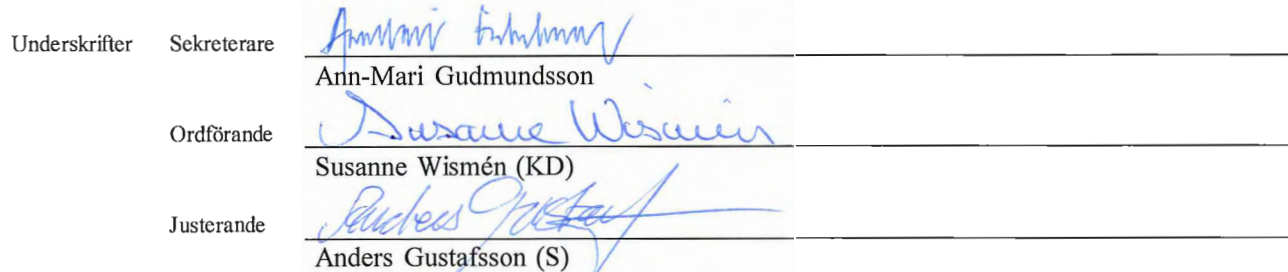 Underskrifter Sekreterare
Ann-Mari Gudmundsson
Ordförande Susanne Wismén
Susanne Wismén (KD)
Justerande Anders Gustaf
Anders Gustafsson (S)